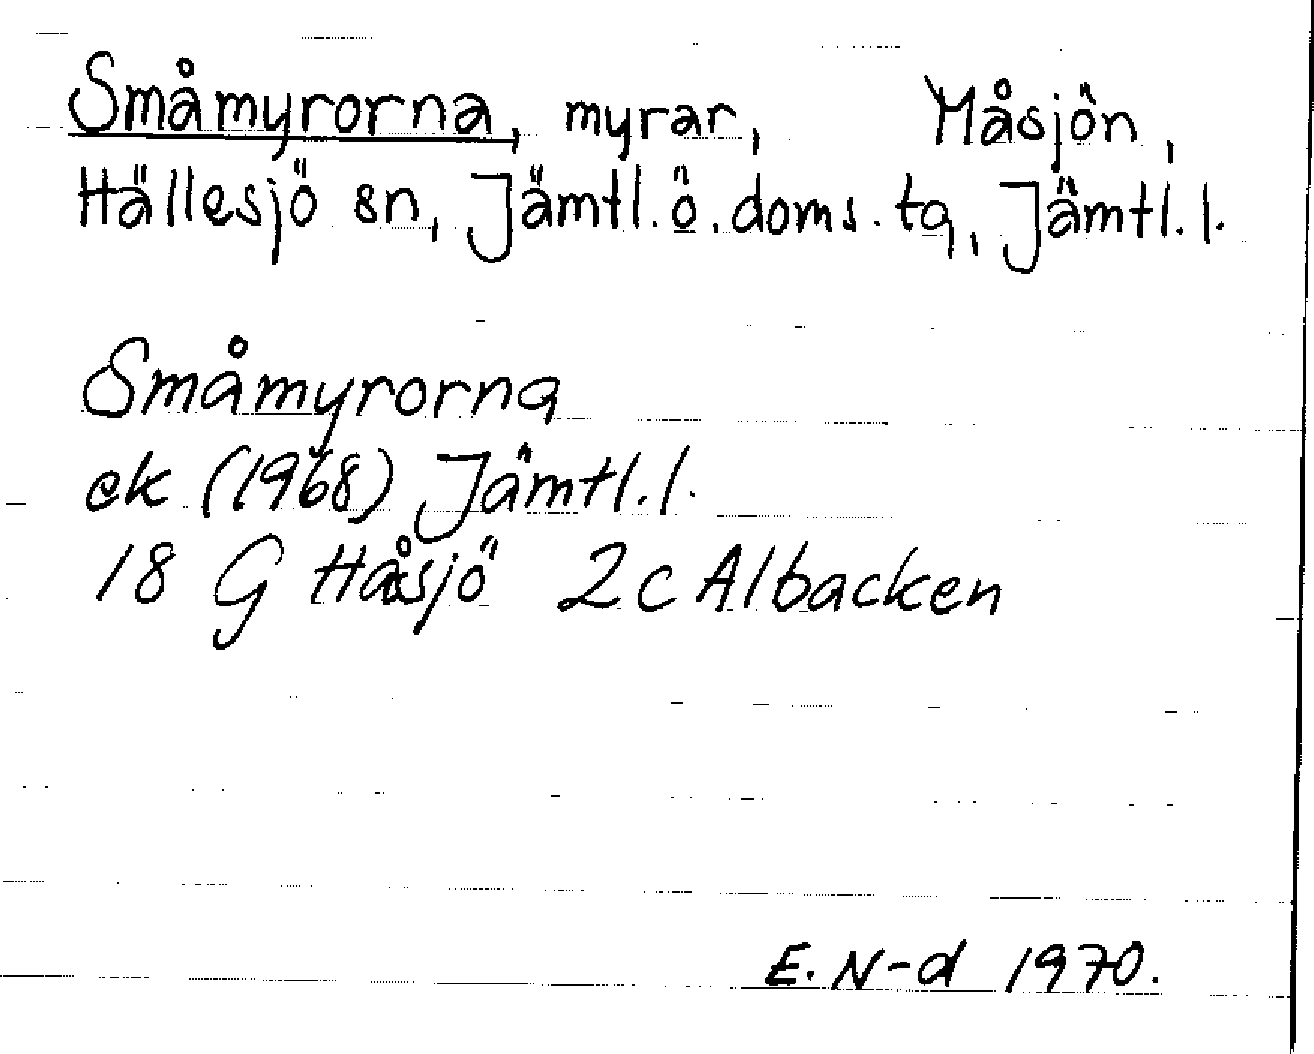 Småmyrorna, myrar, Måsjön,
Hällesjö sn, Jämtl. ö. doms. tg, Jämtl. l.
Småmyrorna
ek (1968) Jämtl. l.
18 G Håsjö 2 c Albacken
E. N-d 1970.